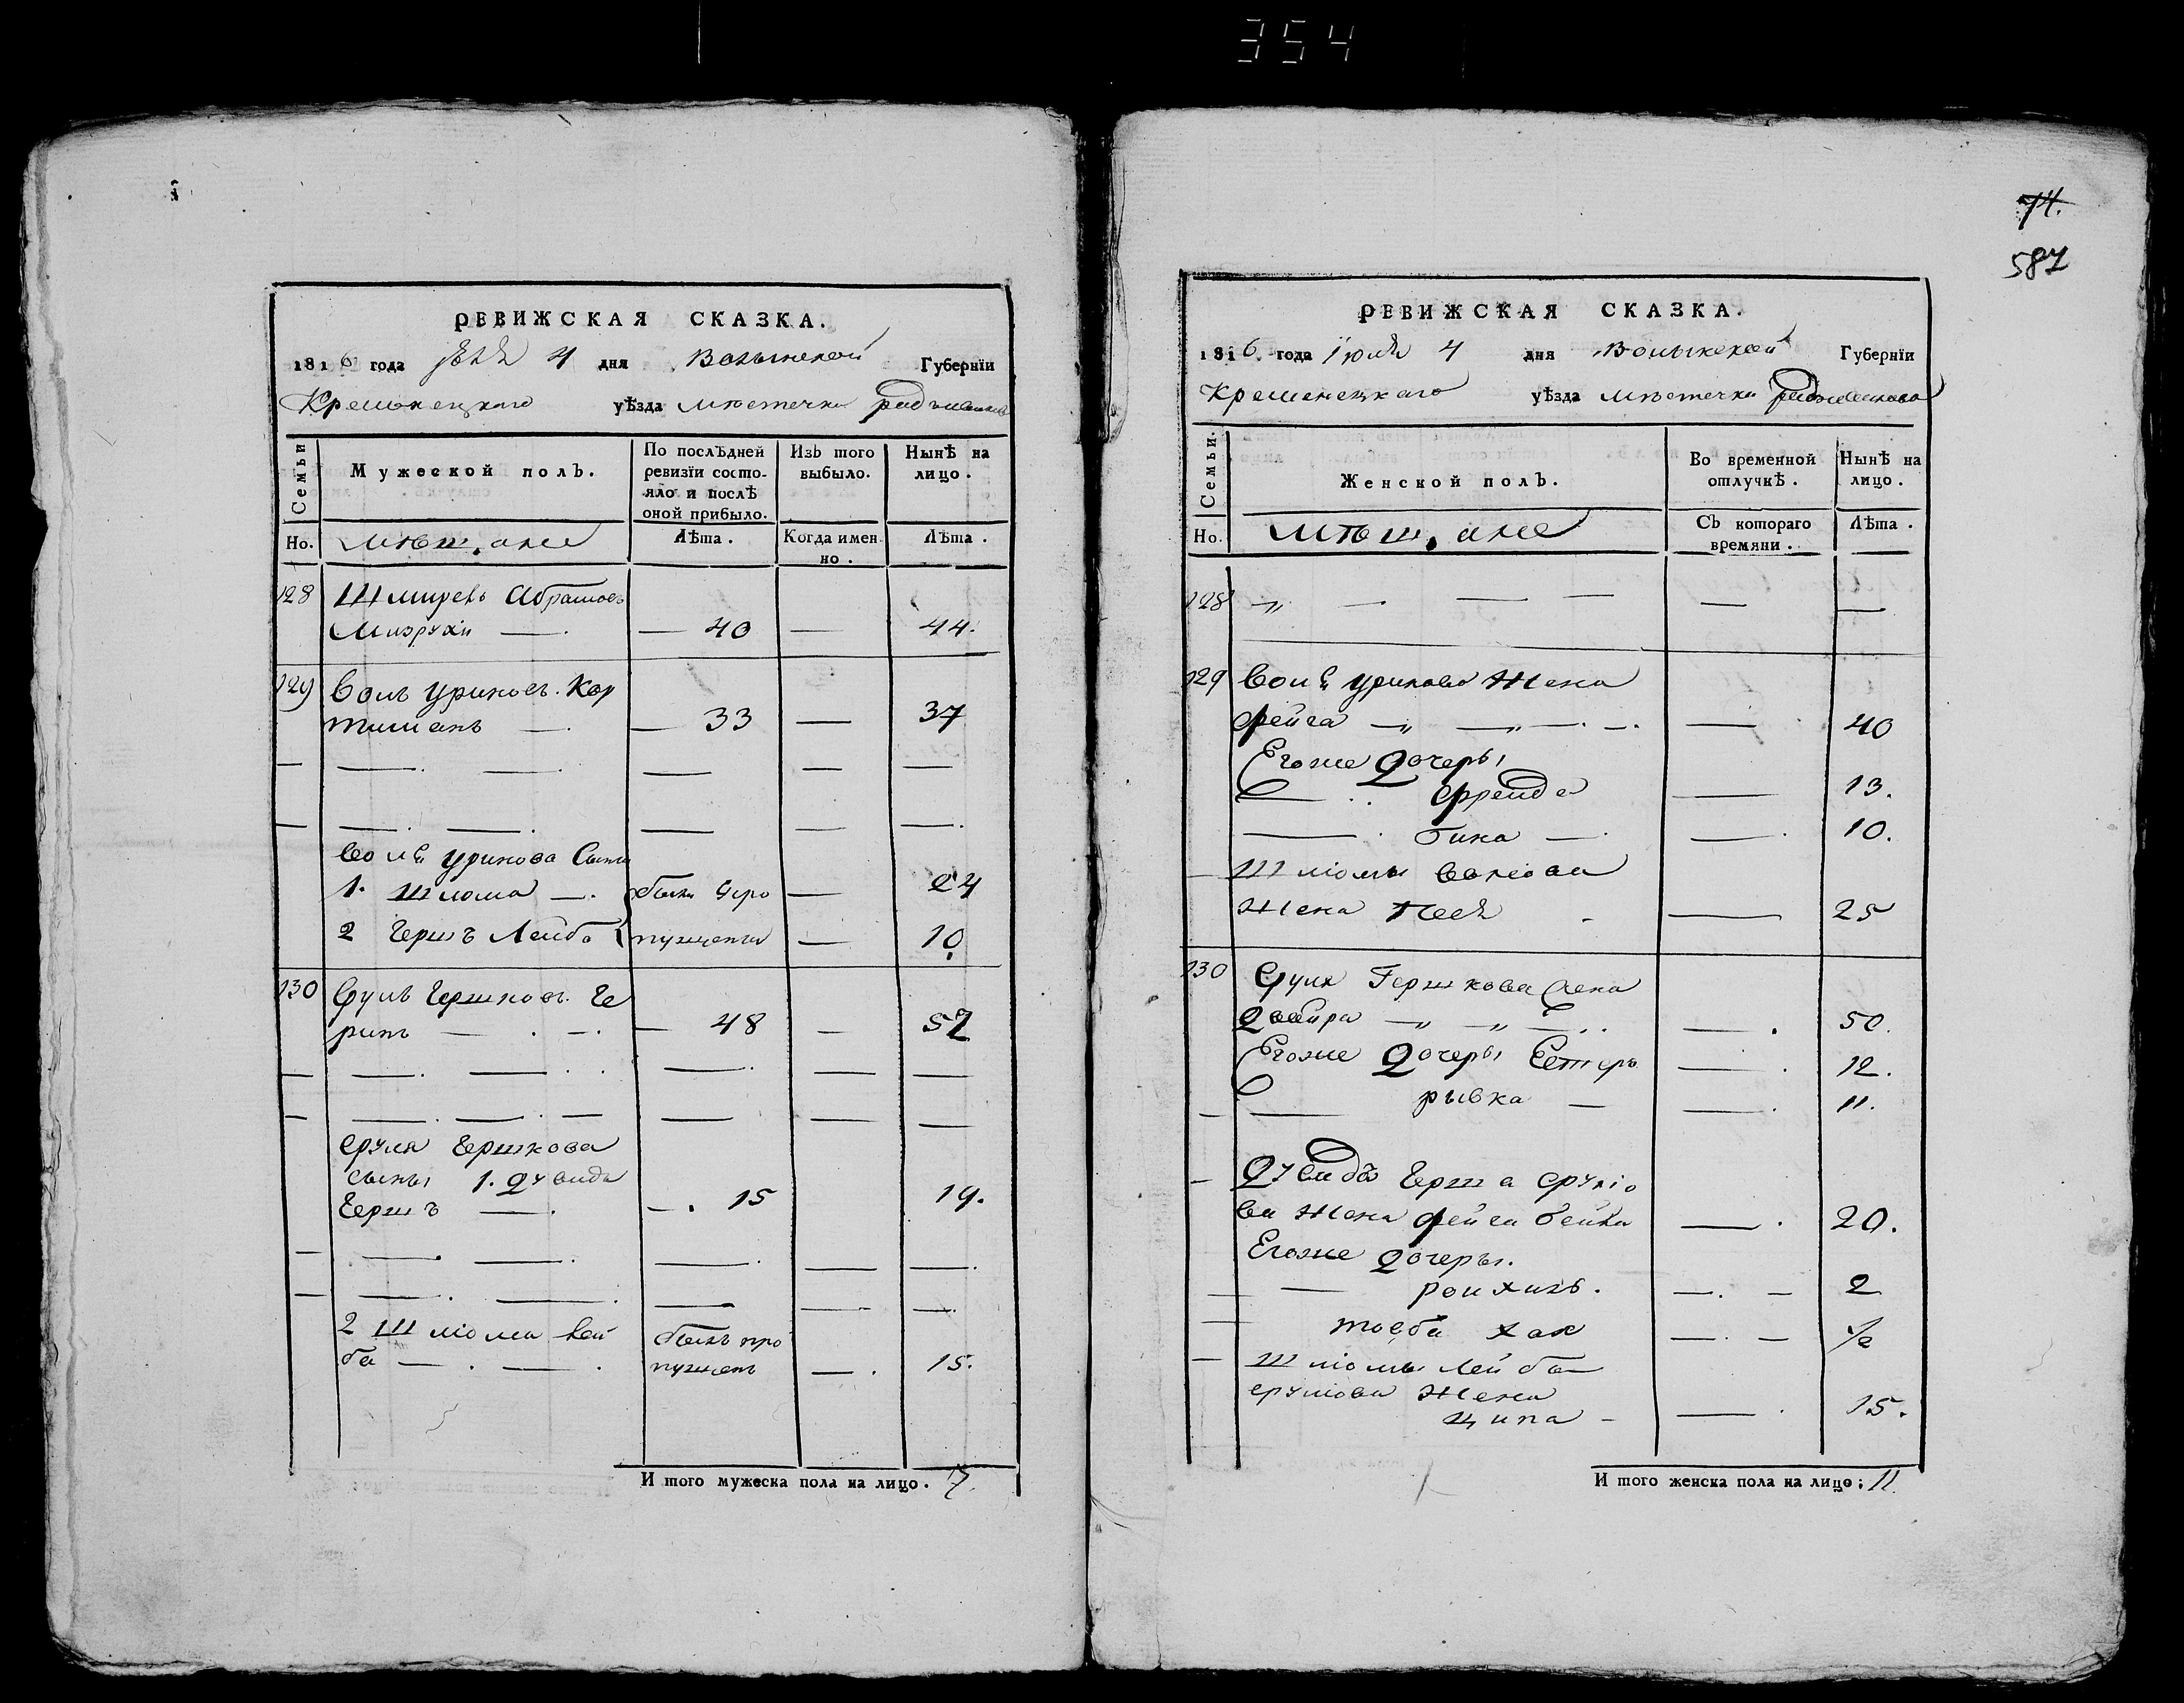 354
74.
587
РЕВИЖСКАЯ СКАЗКА.
1816 года 4 дня Волынской Губернїи
Кременецкаго уѣзда мѣстечка
Семьи
Мужеской полъ.
По послѣдней ревизїи состо-
яло и послѣ
оной прибыло.
Изъ того выбыло.
Нынѣ на лицо.
Но. мѣщане Лѣта. Когда имен но. Лѣта.
128 Шмирель Абрамовъ
— 40 — 44.
129 Волъ Уриновъ Кор
тиманъ — — 33 — 37
Воля Уринова Сыны
1. Шлома — были про — 24
2 Гершъ Лейба пущены — 10
130 Сруль Гершковъ Ге
ринъ — — 48 — 52
Сруля Гершкова
сыны 1. Дувидъ
Гершъ — — 15 19.
2 Шлома Лей былъ про
ба — пущенъ — 15.
И того мужеска пола на лицо. 7.
РЕВИЖСКАЯ СКАЗКА.
1816 года Iюля 4 дня Волынской Губернїи
Кременецкаго уѣзда мѣстечка
Семьи.
Женской полъ.
Во временной отлучкѣ.
Нынѣ на лицо.
Но. мѣщане Съ котораго времяни. Лѣта.
128 „ — — — — —
129 Воля Уринова Жена
Фейга — „ — „ — — 40
Егоже Дочеры
— Фрейда — 13.
— Бика — — 10.
Шлiомы Волiова
Жена Песя — 25
130 Сруля Гершкова Жена
Двейра — „ — „ — 50.
Егоже Дочеры Естеръ — 12.
— рывка — — 11.
— Дувидъ Герша Срулiо
ва Жена Фейга Бейла — 20.
Егоже Дочеры.
— — — 2
Тоеба Хая — ½
— Шлiомы Лейба
срулiова Жена
Ципа — — 15.
И того женска пола на лицо: 11.